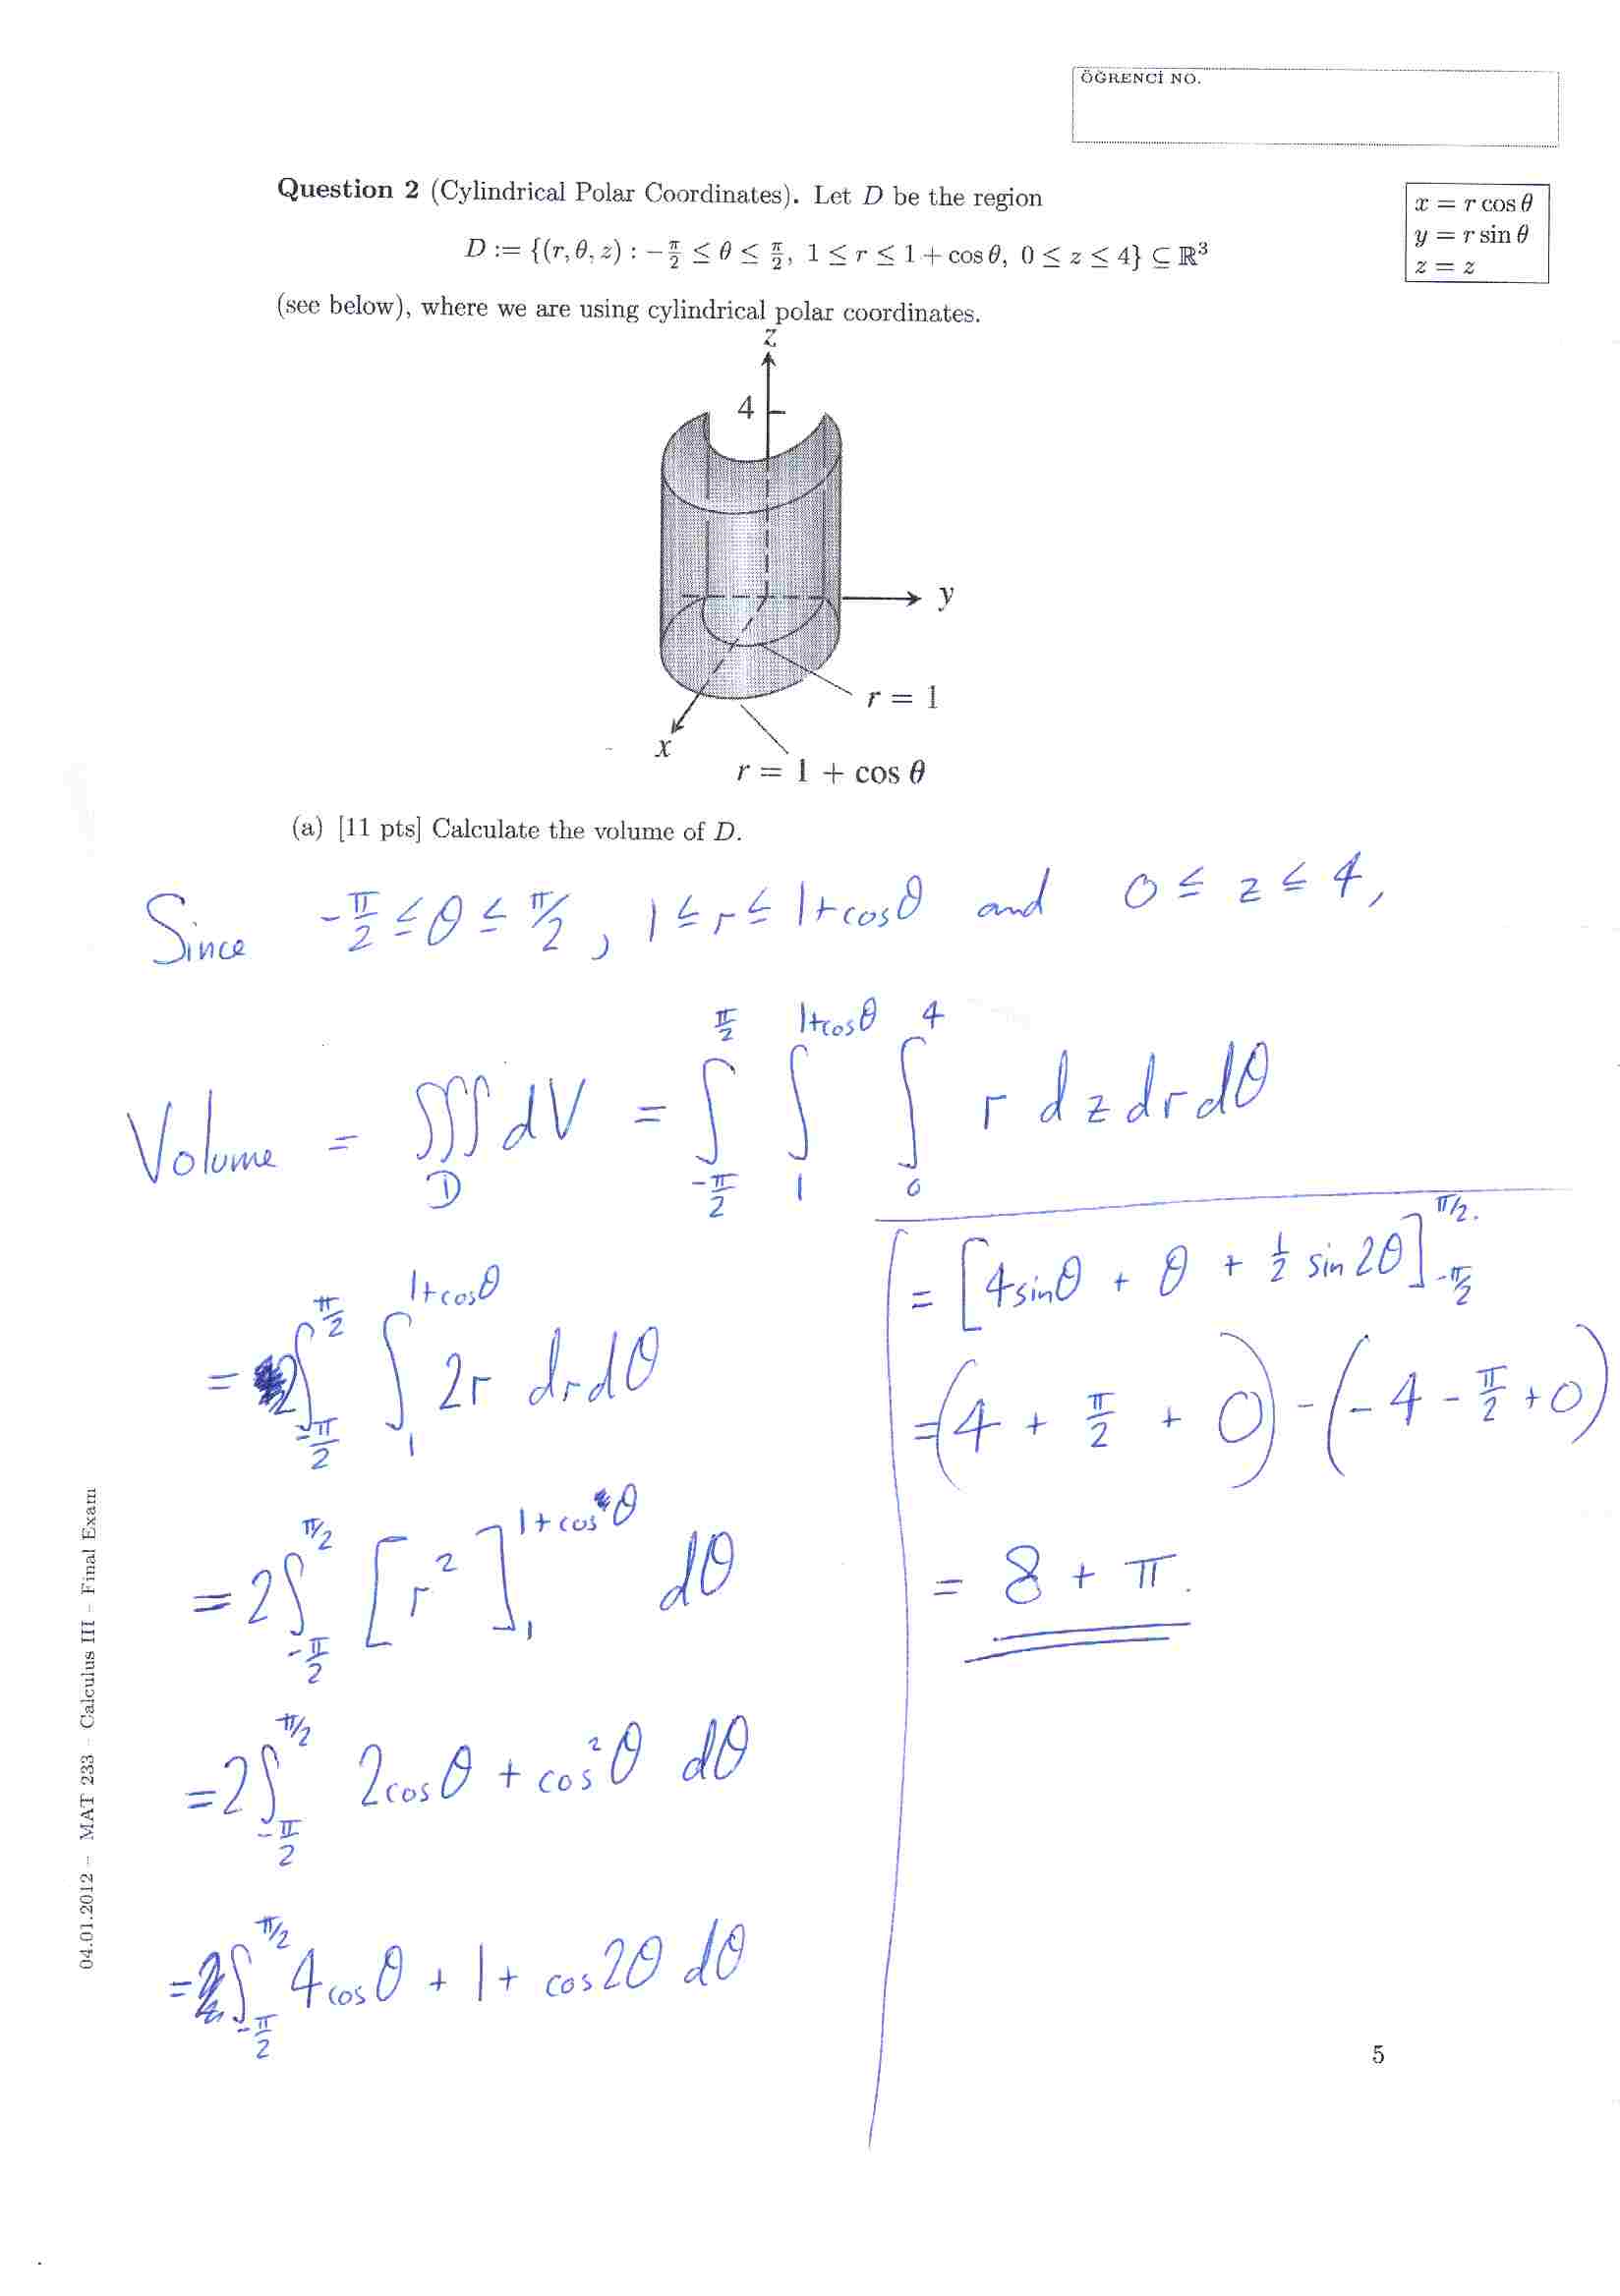 ÖĞRENCİ NO.
Question 2 (Cylindrical Polar Coordinates). Let D be the region
x = r cos θ
y = r sin θ
z = z
D := {(r, θ, z) : −π/2 ≤ θ ≤ π/2, 1 ≤ r ≤ 1 + cos θ, 0 ≤ z ≤ 4} ⊆ ℝ³
(see below), where we are using cylindrical polar coordinates.
z
4
y
r = 1
x
r = 1 + cos θ
(a) [11 pts] Calculate the volume of D.
Since −π/2 ≤ θ ≤ π/2, 1 ≤ r ≤ 1+cosθ and 0 ≤ z ≤ 4,
Volume = ∭_D dV = ∫_{-π/2}^{π/2} ∫_1^{1+cosθ} ∫_0^4 r dz dr dθ
= 2∫_{-π/2}^{π/2} ∫_1^{1+cosθ} 2r dr dθ
= 2∫_{-π/2}^{π/2} [r²]_1^{1+cosθ} dθ
= 2∫_{-π/2}^{π/2} 2cosθ + cos²θ dθ
= ∫_{-π/2}^{π/2} 4cosθ + 1 + cos2θ dθ
= [4sinθ + θ + ½ sin2θ]_{-π/2}^{π/2}.
= (4 + π/2 + 0) − (−4 − π/2 + 0)
= 8 + π.
04.01.2012 – MAT 233 – Calculus III – Final Exam
5